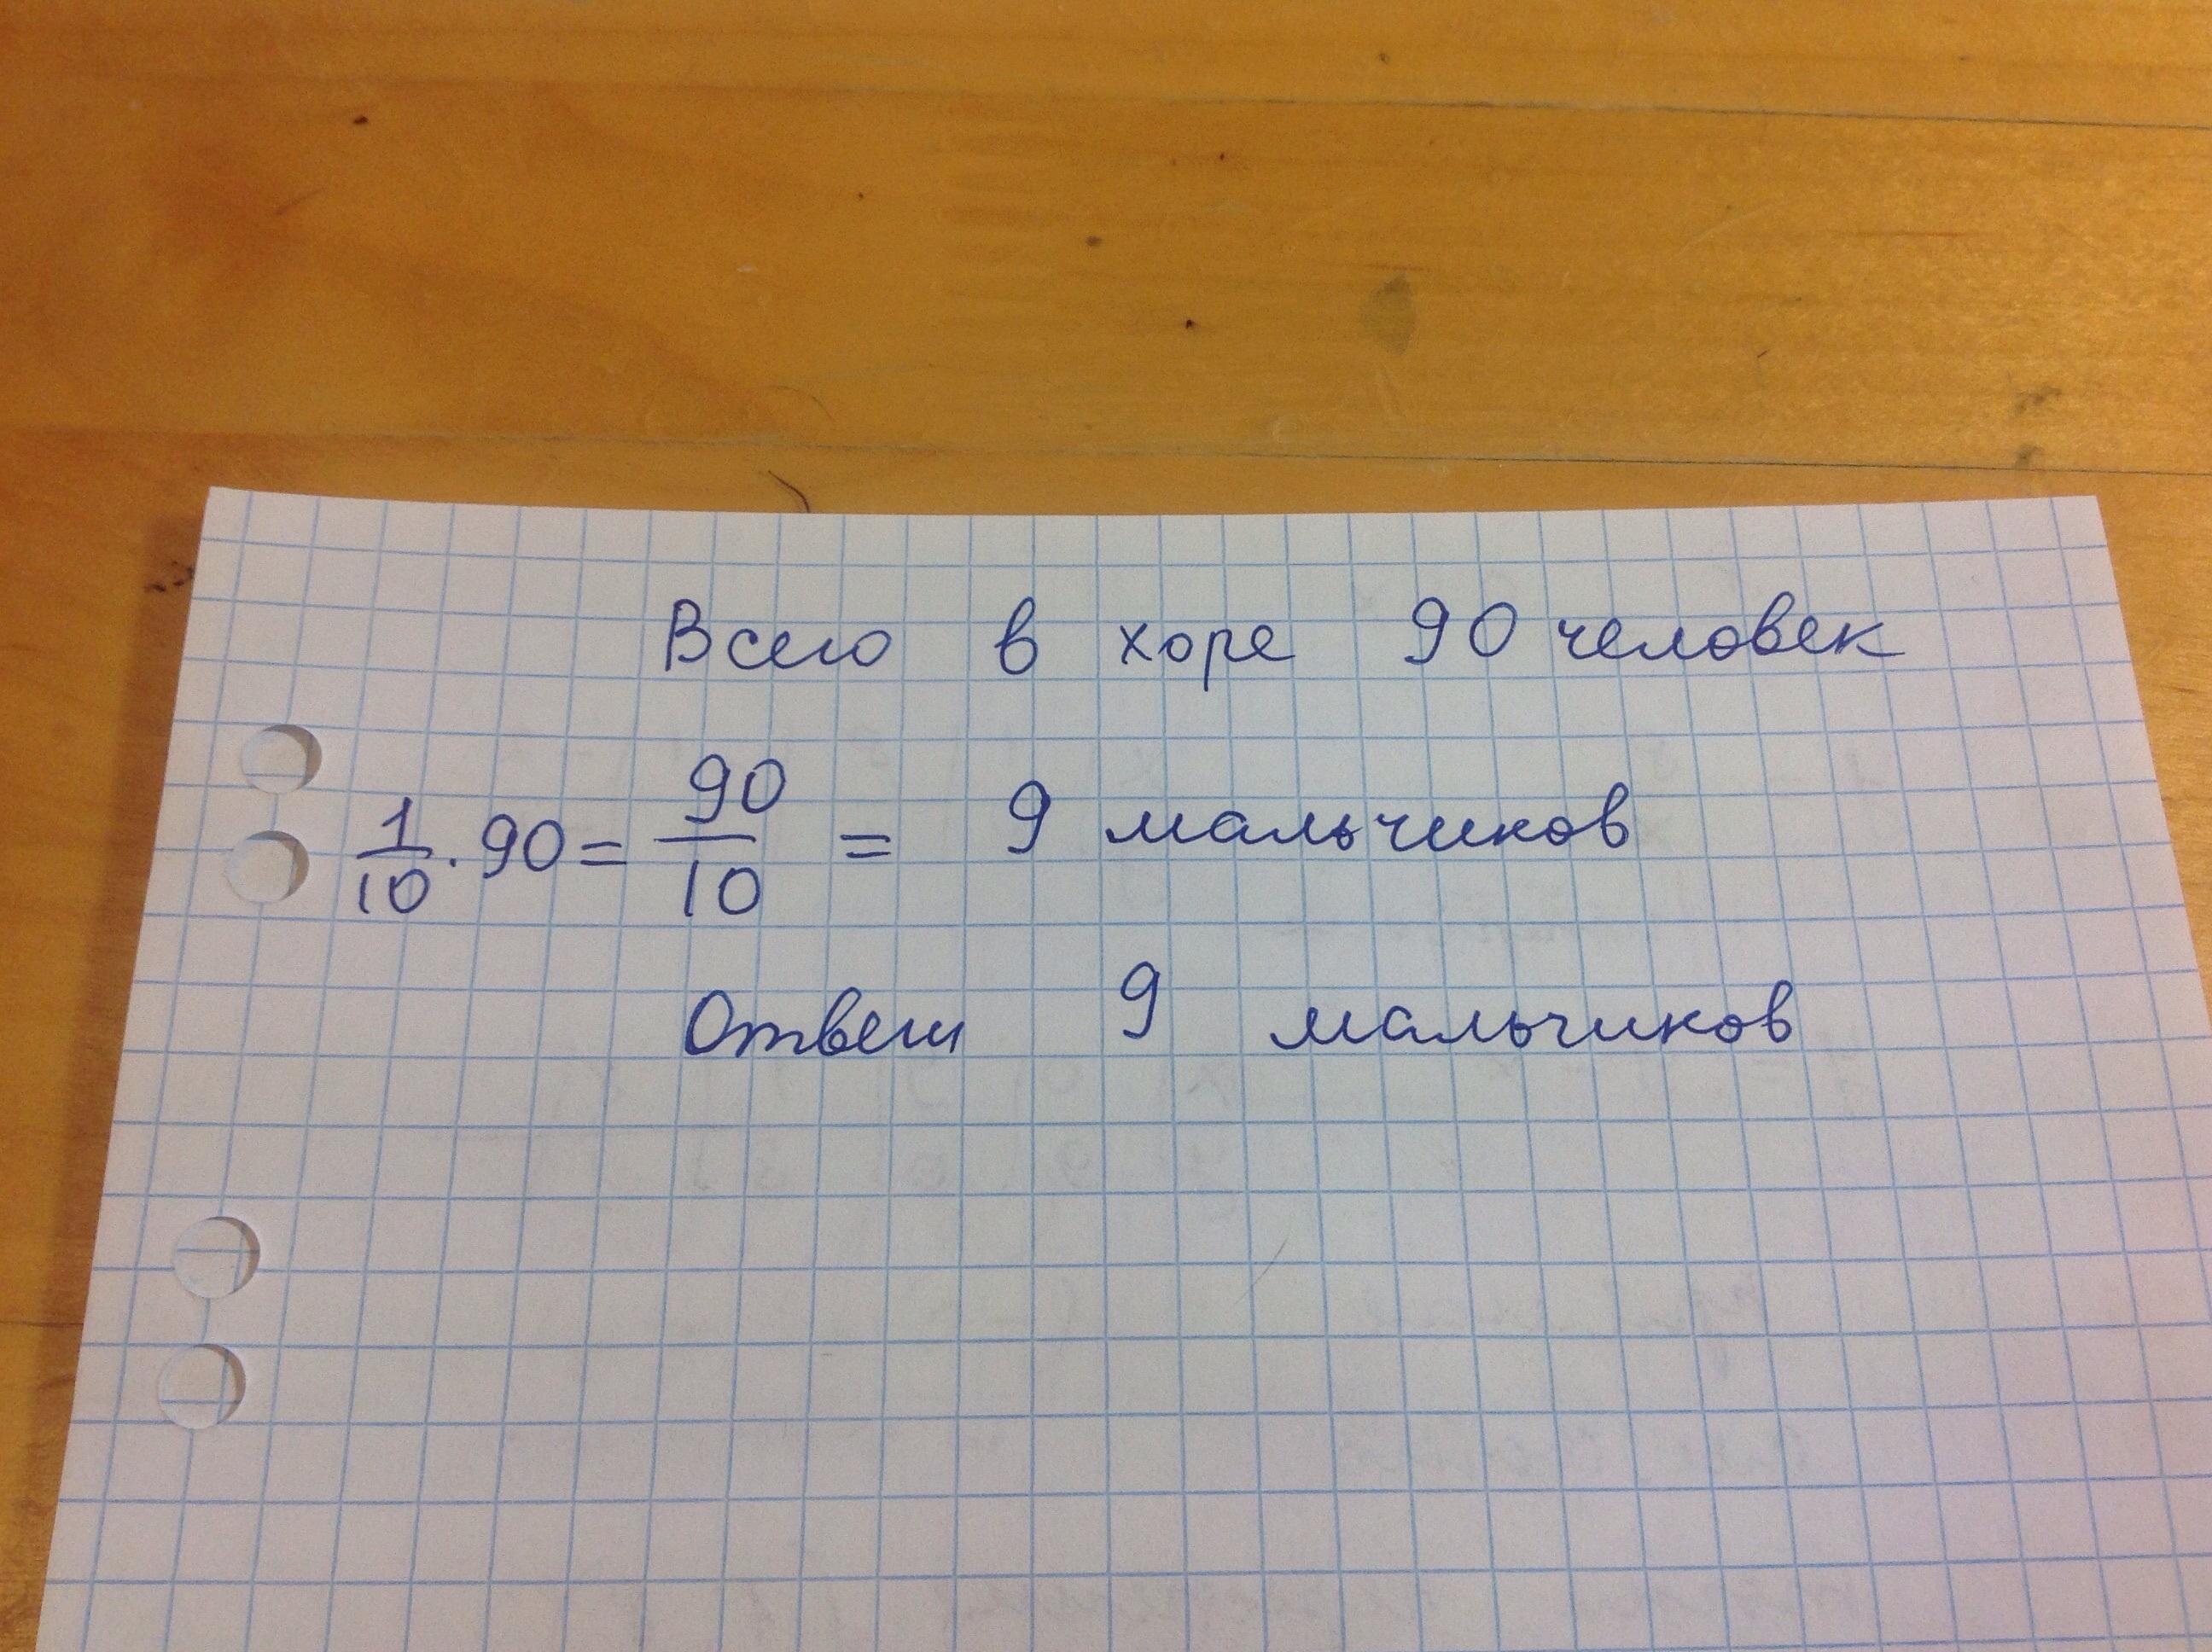 Всего в хоре 90 человек
1/10 · 90 = 90/10 = 9 мальчиков
Ответ 9 мальчиков